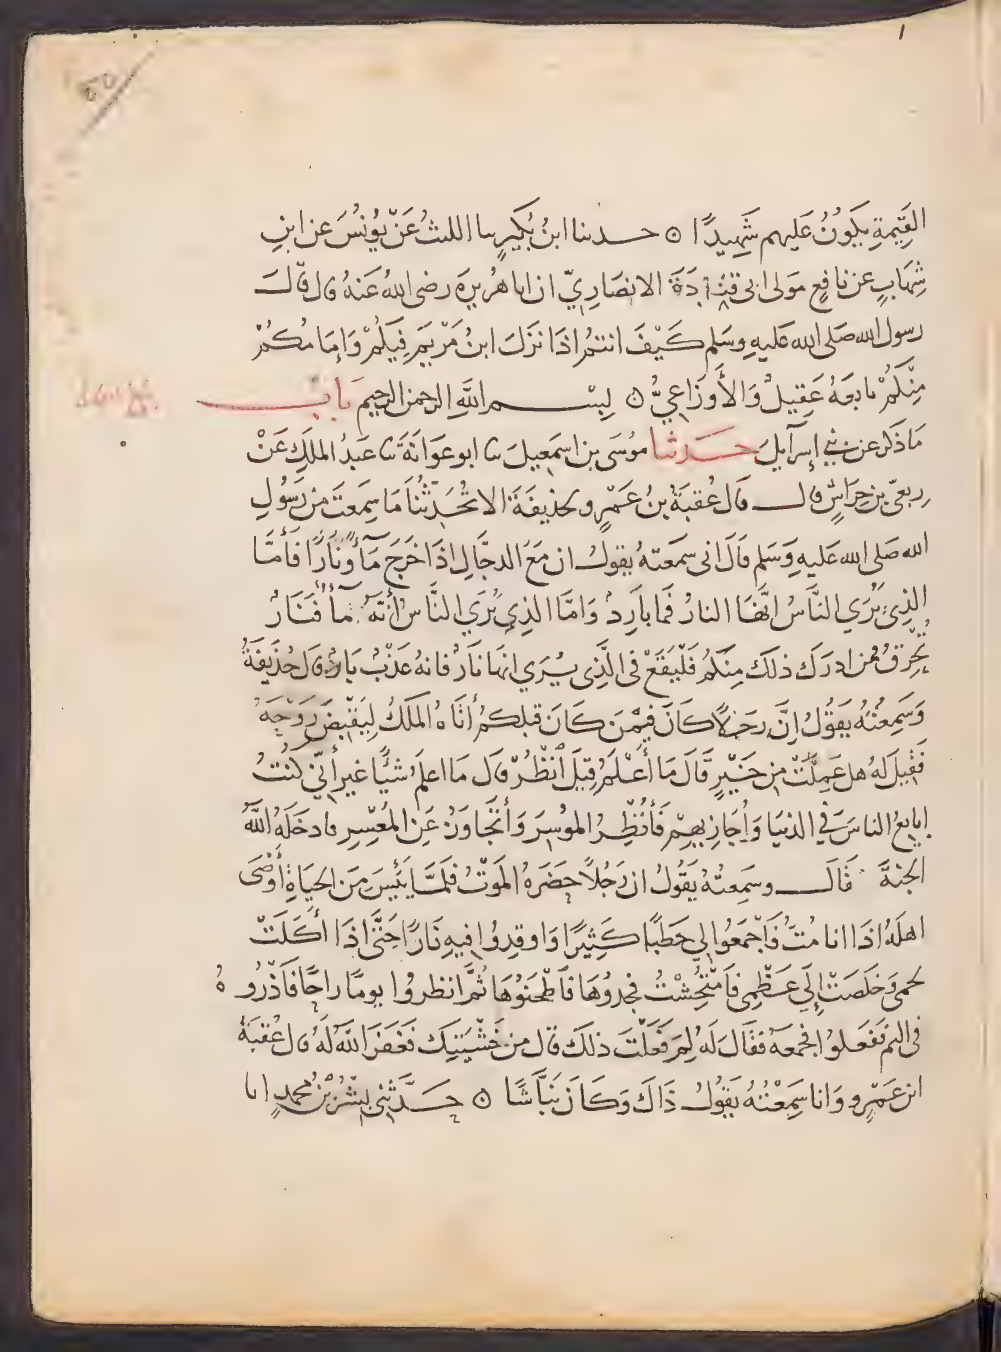 ١
القِيمةِ يكونُ عَليهم شَهِيدًا ه حدثنا ابنُ بُكَيرٍ نا الليثُ عَنْ يُونُسَ عن ابنِ
شِهَابٍ عن نافعٍ مَولى ابى قتادَةَ الانصَارِيِّ ان اباهُريرَةَ رضى اللهُ عَنهُ قال قَالَ
رسول الله صَلى الله عَليهِ وسَلم كَيْفَ انتمُ اذَا نَزَلَ ابنُ مَرْيَمَ فِيكُمْ وَامَامُكُمْ
مِنْكُمْ تابَعَهُ عَقِيلٌ وَالأَوزَاعِيُّ ه بِسْمِ اللهِ الرحمن الرحيم بَابُ
مَا ذكرَ عن بني إسرآيلَ حَدثنا مُوسَى بن اسمَعِيلَ نا ابو عَوَانَةَ نا عَبدُ الملكِ عَنْ
رِبعيّ بن حِرَاشٍ قال قال عُقبَةُ بنُ عَمْرٍو لحذيفَةَ الا تُحَدِّثُنَا مَا سِمَعتَ مِنْ رَسُولِ
الله صَلى الله عَليهِ وَسَلم قَالَ انى سمَعتهُ يقولُ ان مَعَ الدجَّالِ اذَا خَرَجَ مَآءً وَنَارًا فَأَمَّا
الذِى يَرَي النَّاسُ انَّهَا النارُ فمَا بارِدٌ وَامَّا الذِي يَرَي النَّاسُ أنَّهُ مآءٌ فَنَارٌ
تُحْرِقُ فمن ادرَكَ ذلكَ مِنكُمْ فَلْيَقَعْ فى الَّذِى يُرَي انهَا نَارٌ فانهُ عَذْبٌ بَارِدٌ قال حُذَيفَةُ
وَسَمِعْتُهُ يَقُولُ اِنَّ رَجُلاً كَانَ فِيمَن كَانَ قَبلكمُ أتَاهُ المَلَكُ لِيَقْبِضَ رُوْحَهُ
فَقِيلَ لهُ هل عَمِلْتَ مِن خَيْرٍ قَالَ مَا أَعْلَمُ قِيلَ انْظُرْ قال مَا اعلمُ شَيْئًا غير أَنّي كنتُ
ابايعُ الناسَ فى الدنيَا وَاُجَازِيهِمْ فَأُنْظِرُ المُوسِرَ وَأَتَجَاوَزُ عَنِ المُعْسِرِ فادخَلَهُ اللهُ
الجنةَ قَالَ وسَمِعتهُ يَقُولُ ان رَجُلاً حَضَرَهُ المَوْتُ فَلَمَّا يَئِسَ مِنَ الحيَاةِ أَوْصَى
اهلَهُ اذَا انا مُتُّ فَاجْمَعُوا لي حَطَبًا كَثِيرًا وَاوقِدُوا فيهِ نَارًا حَتَّى اذَا أَكَلَتْ
لحمى وَخَلَصَتْ إِلَي عَظْمِى فَامْتُحِشْتُ فخُذوُهَا فَاطْحَنُوهَا ثُمَّ انظروُا يومًا راحًا فَاذْرُوهُ
فى اليَمِّ فَفَعلوا فجمَعَهُ فقَالَ لَهُ لِمَ فَعَلْتَ ذلكَ قال مِن خَشْيَتِكَ فَغَفَرَ اللهُ لهُ قال عُقبَةُ
ابن عَمْرٍو وَانا سَمِعْتُهُ يَقُولُ ذَاكَ وَكَانَ نَبَّاشًا ه حَدَّثَنِي بِشْرُ بْنُ محمدٍ انا